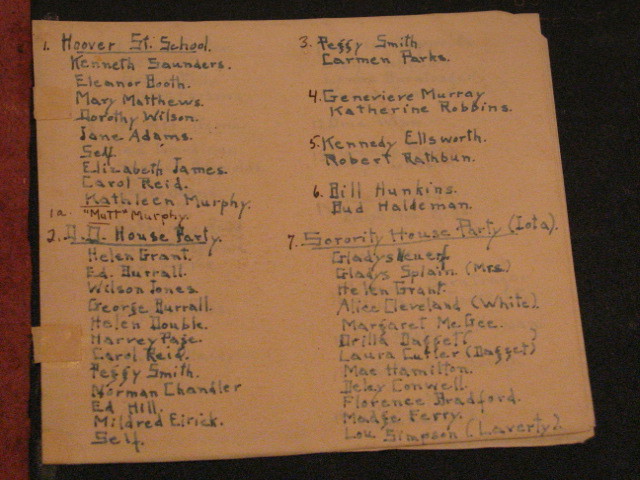 1. Hoover St. School.
Kenneth Saunders.
Eleanor Booth.
Mary Matthews.
Dorothy Wilson.
Jane Adams.
Self.
Elizabeth James.
Carol Reid.
Kathleen Murphy.
1a. "Mutt" Murphy.
2. House Party.
Helen Grant.
Ed. Burrall.
Wilson Jones.
George Burrall.
Helen Double.
Harvey Page.
Carol Reid.
Peggy Smith.
Norman Chandler
Ed Hill.
Mildred Eirick.
Self.
3. Peggy Smith
Carmen Parks.
4. Genevieve Murray
Katherine Robbins.
5. Kennedy Ellsworth.
Robert Rathbun.
6. Bill Hunkins.
Bud Haldeman.
7. Sorority House Party (Iota).
Gladys
Gladys Splain (Mrs)
Helen Grant.
Alice Cleveland (White).
Margaret McGee.
Daggett
Laura Cutler (Dagget)
Mae Hamilton.
Conwell.
Florence Bradford.
Madge Ferry.
Lou Simpson (Laverty).